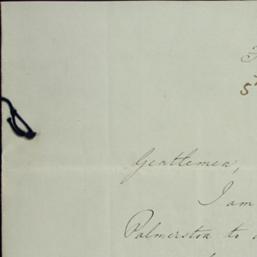 5
Gentlemen,
I am
Palmerston to